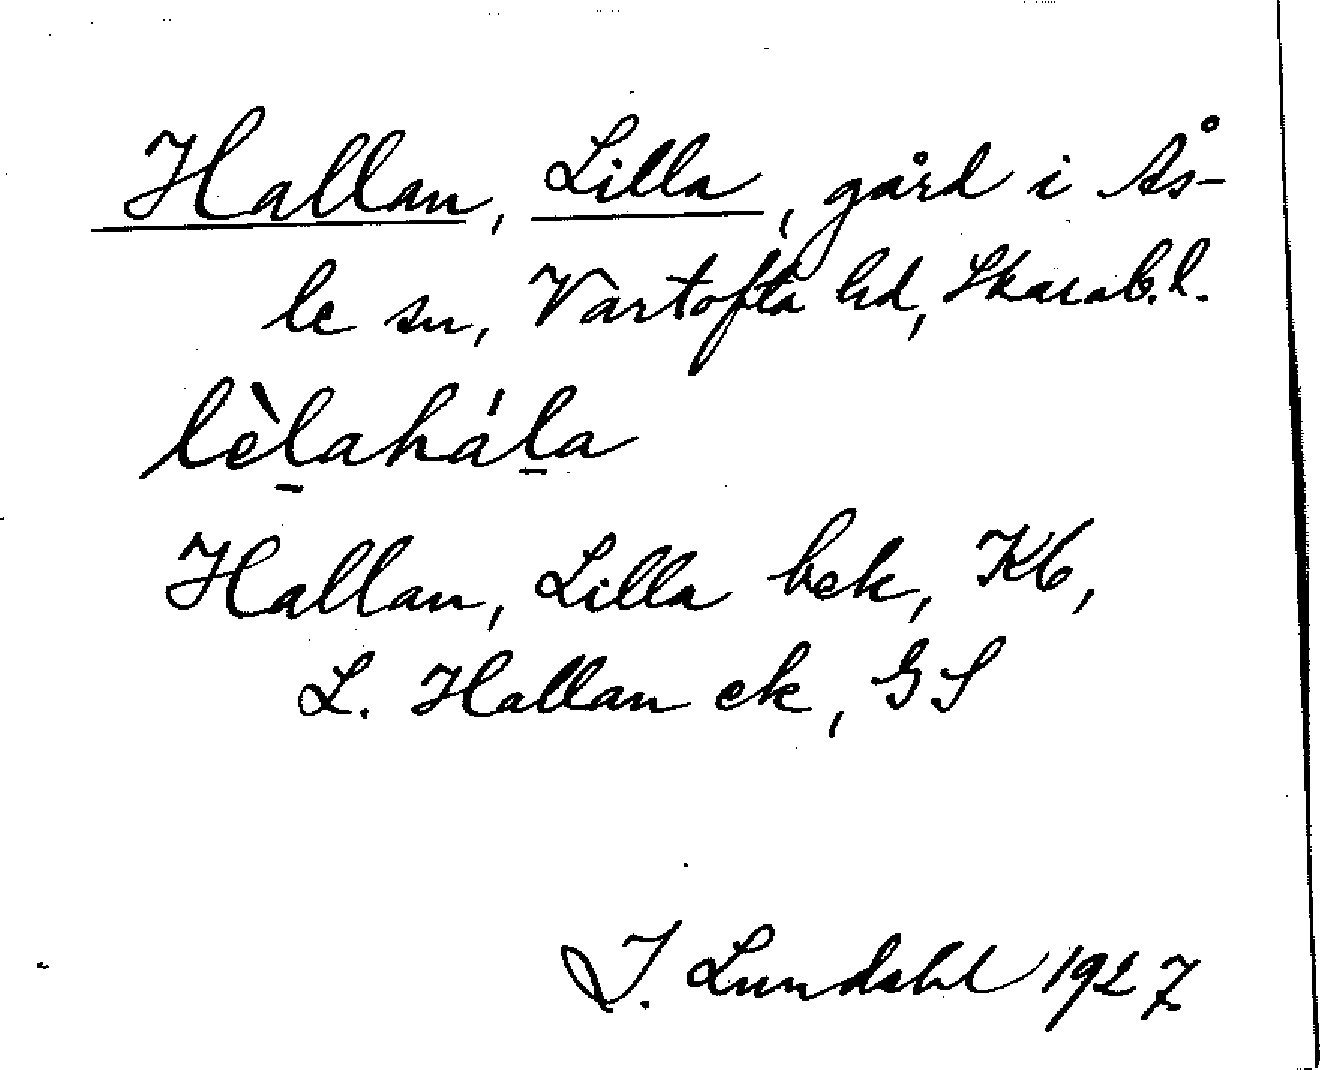 Hallan, Lilla, gård i Ås-
le sn, Vartofta hd, Skarab.l.
lèl̠ahál̠a
Hallan, Lilla bek, Kb,
L. Hallan ek, GS
I. Lundahl 1927